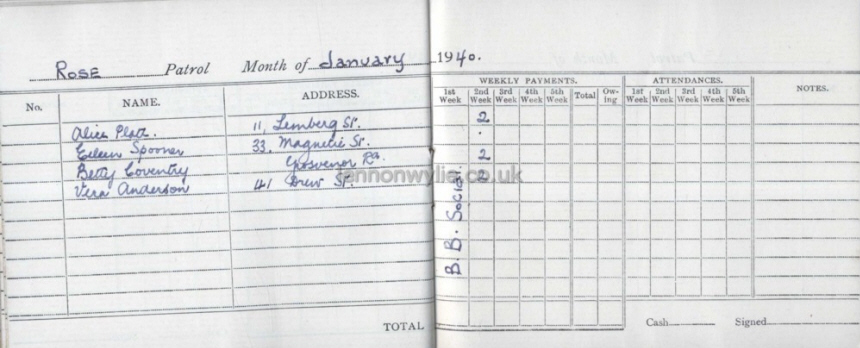 Rose Patrol Month of January 1940.
WEEKLY PAYMENTS. ATTENDANCES.
No. NAME. ADDRESS. 1st Week 2nd Week 3rd Week 4th Week 5th Week Total Ow-ing 1st Week 2nd Week 3rd Week 4th Week 5th Week NOTES.
Alice Platt. 11, Lemberg St. 2
Eileen Spooner 33, Magnetic St. .
Betty Coventry Grosvenor Rd. 2
Vera Anderson 41 Drew St. 2
B. B. Social.
lennonwylie.co.uk
TOTAL Cash Signed